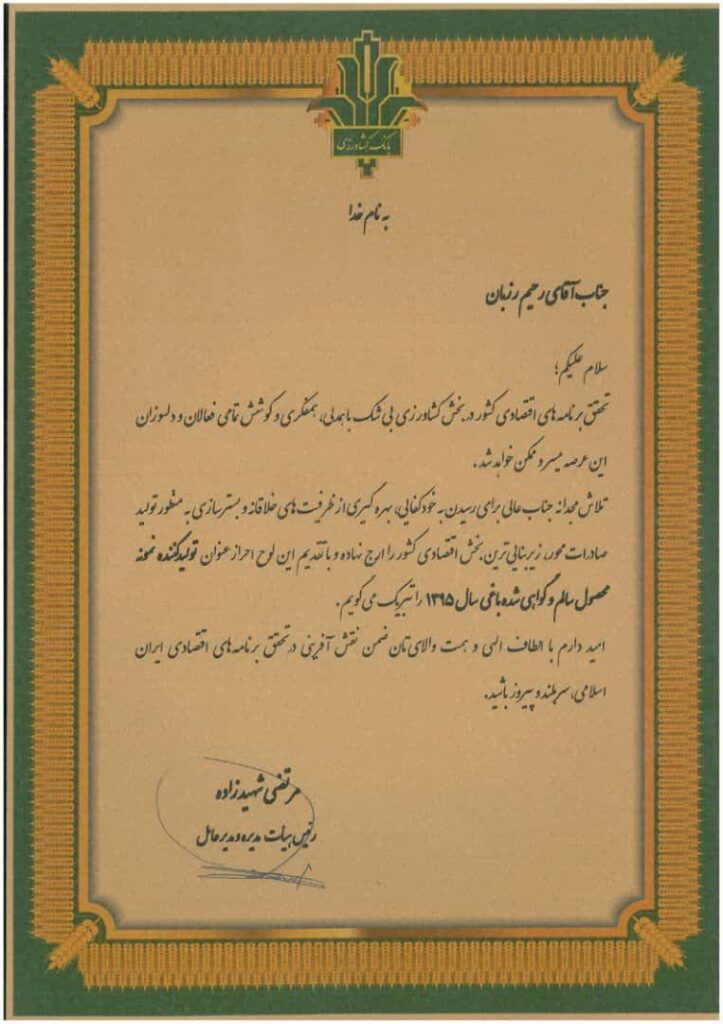 بانک کشاورزی
به نام خدا
جناب آقای رحیم رزبان
سلام علیکم؛
تحقق برنامه های اقتصادی کشور در بخش کشاورزی بی شک با همدلی، همفکری و کوشش تمامی فعالان و دلسوزان
این عرصه میسر و ممکن خواهد شد.
تلاش مجدانه جناب عالی برای رسیدن به خودکفایی، بهره گیری از ظرفیت های خلاقانه و بسترسازی به منظور تولید
صادرات محور، زیربنایی ترین بخش اقتصادی کشور را ارج نهاده و با تقدیم این لوح احراز عنوان تولیدکننده نمونه
محصول سالم و گواهی شده باغی سال ۱۳۹۵ را تبریک می گویم.
امید دارم با الطاف الهی و همت والای تان ضمن نقش آفرینی در تحقق برنامه های اقتصادی ایران
اسلامی، سربلند و پیروز باشید.
مرتضی شهیدزاده
رئیس هیأت مدیره و مدیرعامل